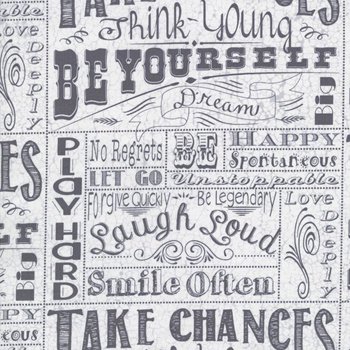 TAKE CHANCES
Think Young
BE YOURSELF
Dream
Big
Love Deeply
PLAY HARD
No Regrets
LET GO
BE
HAPPY
Spontaneous
Unstoppable
Forgive Quickly ~ Be Legendary
Laugh Loud
Smile Often
Love Deeply
Big
TAKE CHANCES